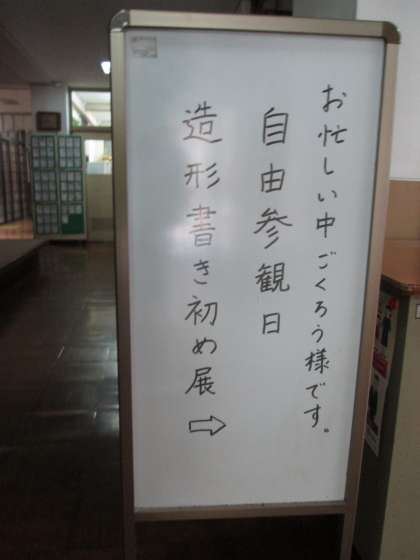 お忙しい中ごくろう様です。
自由参観日
造形書き初め展⇨